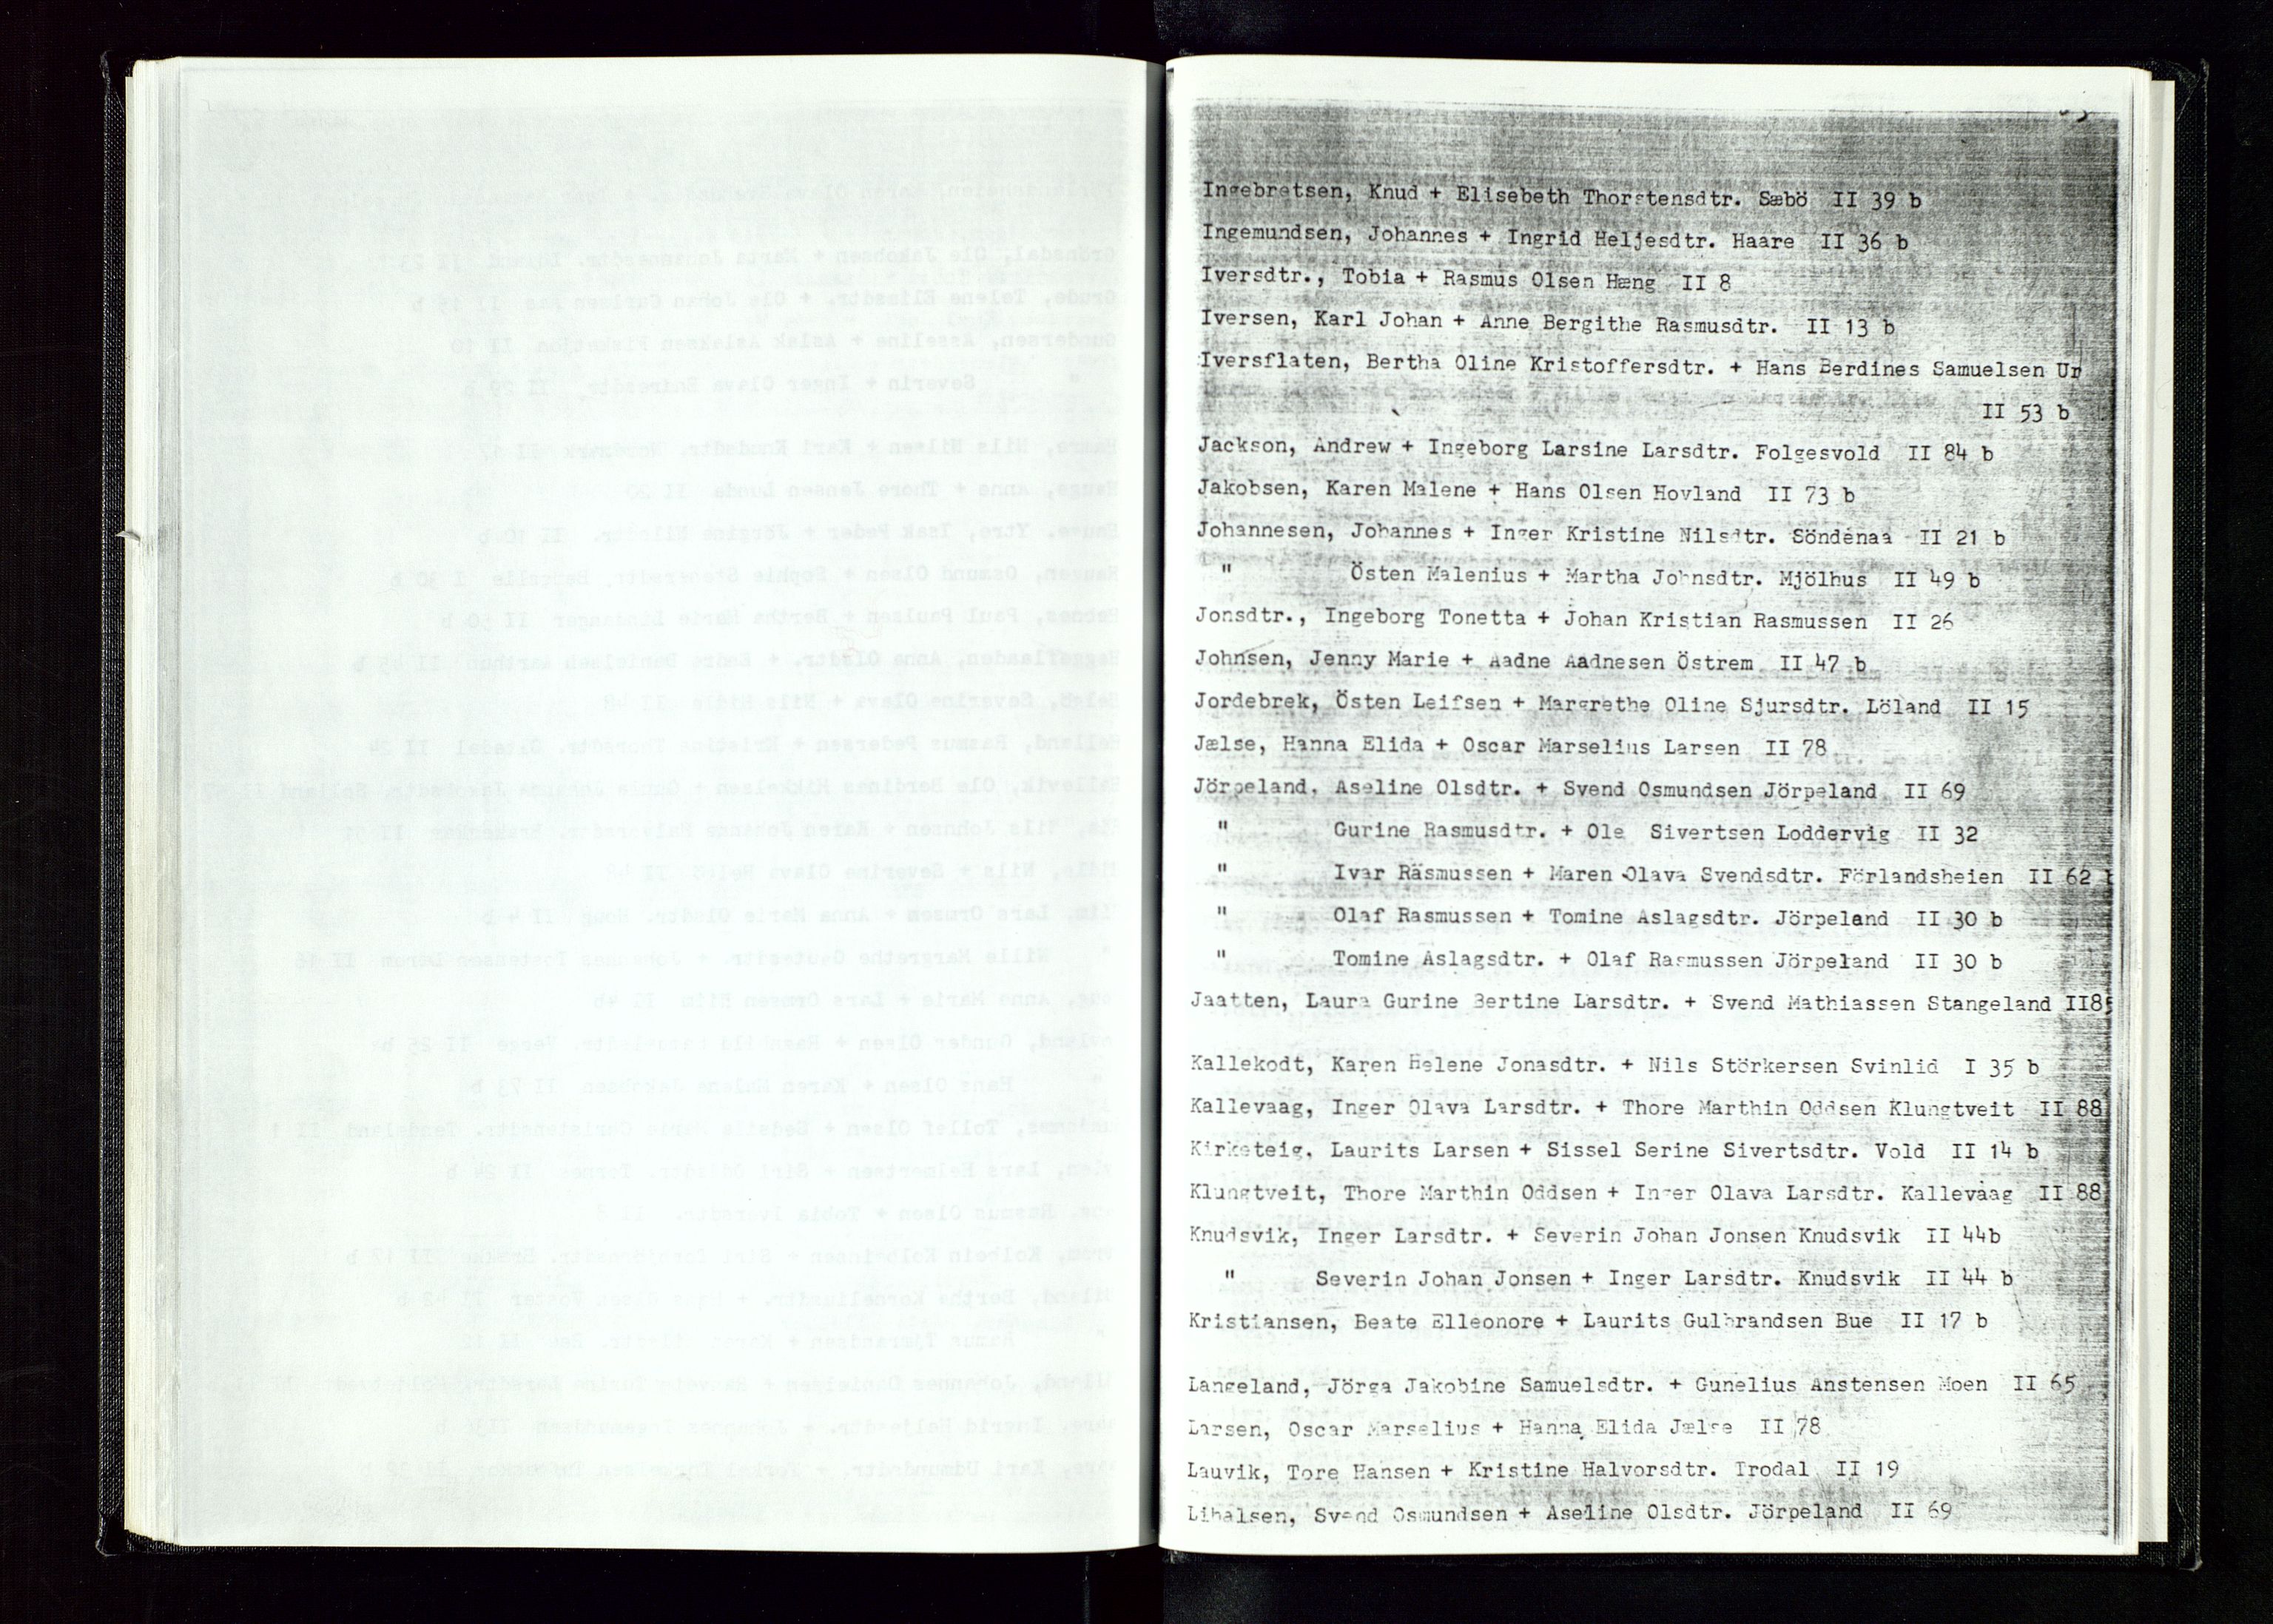 Ingebretsen, Knud + Elisebeth Thorstensdtr. Sæbö II 39 b
Ingemundsen, Johannes + Ingrid Heljesdtr. Haare II 36 b
Iversdtr., Tobia + Rasmus Olsen Hæng II 8
Iversen, Karl Johan + Anne Bergithe Rasmusdtr. II 13 b
Iversflaten, Bertha Oline Kristoffersdtr. + Hans Berdines Samuelsen Ur
II 53 b
Jackson, Andrew + Ingeborg Larsine Larsdtr. Folgesvold II 84 b
Jakobsen, Karen Malene + Hans Olsen Hovland II 73 b
Johannesen, Johannes + Inger Kristine Nilsdtr. Söndenaa II 21 b
" Östen Malenius + Martha Johnsdtr. Mjölhus II 49 b
Jonsdtr., Ingeborg Tonetta + Johan Kristian Rasmussen II 26
Johnsen, Jenny Marie + Aadne Aadnesen Östrem II 47 b
Jordebrek, Östen Leifsen + Margrethe Oline Sjursdtr. Löland II 15
Jælse, Hanna Elida + Oscar Marselius Larsen II 78
Jörpeland, Aseline Olsdtr. + Svend Osmundsen Jörpeland II 69
" Gurine Rasmusdtr. + Ole Sivertsen Loddervig II 32
" Ivar Rasmussen + Maren Olava Svendsdtr. Förlandsheien II 62
" Olaf Rasmussen + Tomine Aslagsdtr. Jörpeland II 30 b
" Tomine Aslagsdtr. + Olaf Rasmussen Jörpeland II 30 b
Jaatten, Laura Gurine Bertine Larsdtr. + Svend Mathiassen Stangeland
Kallekodt, Karen Helene Jonasdtr. + Nils Störkersen Svinlid I 35 b
Kallevaag, Inger Olava Larsdtr. + Thore Marthin Oddsen Klungtveit II 88
Kirketeig, Laurits Larsen + Sissel Serine Sivertsdtr. Vold II 14 b
Klungtveit, Thore Marthin Oddsen + Inger Olava Larsdtr. Kallevaag II 88
Knudsvik, Inger Larsdtr. + Severin Johan Jonsen Knudsvik II 44b
" Severin Johan Jonsen + Inger Larsdtr. Knudsvik II 44 b
Kristiansen, Beate Elleonore + Laurits Gulbrandsen Bue II 17 b
Langeland, Jörga Jakobine Samuelsdtr. + Gunelius Anstensen Moen II 65
Larsen, Oscar Marselius + Hanna Elida Jælse II 78
Lauvik, Tore Hansen + Kristine Halvorsdtr. Trodal II 19
Lihalsen, Svend Osmundsen + Aseline Olsdtr. Jörpeland II 69